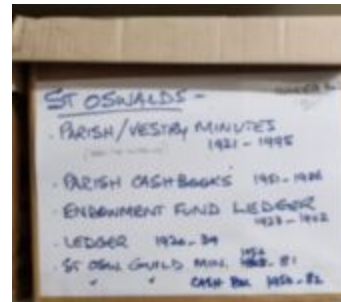 ST OSWALDS -
· PARISH/VESTRY MINUTES
1921 - 1995
· PARISH CASH BOOKS
· ENDOWMENT FUND LEDGER
· LEDGER 1920 - 39
· ST OSW. GUILD MIN. - 81
" " CASH BK. 1950 - 82